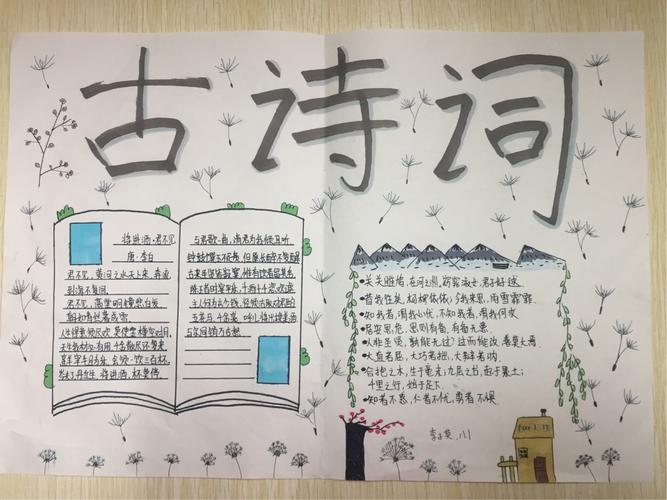 古诗词
将进酒·君不见
唐·李白
君不见,黄河之水天上来,奔流
到海不复回
君不见,高堂明镜悲白发
朝如青丝暮成雪
人生得意须尽欢,莫使金樽空对月
天生我材必有用,千金散尽还复来
烹羊宰牛且为乐,会须一饮三百杯
岑夫子,丹丘生,将进酒,杯莫停
与君歌一曲,请君为我倾耳听
钟鼓馔玉不足贵,但愿长醉不愿醒
古来圣贤皆寂寞,惟有饮者留其名
陈王昔时宴平乐,斗酒十千恣欢谑
主人何为言少钱,径须沽取对君酌
五花马,千金裘,呼儿将出换美酒
与尔同销万古愁
•关关雎鸠,在河之洲,窈窕淑女,君子好逑
•昔我往矣,杨柳依依,今我来思,雨雪霏霏
•知我者,谓我心忧,不知我者,谓我何求
•居安思危,思则有备,有备无患
•人非圣贤,孰能无过?过而能改,善莫大焉
•大直若屈,大巧若拙,大辩若讷
•合抱之木,生于毫末;九层之台,起于累土;
千里之行,始于足下
•知者不惑,仁者不忧,勇者不惧